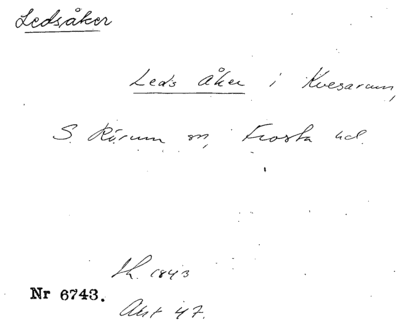 Ledsåker
Leds åker i Kvesarum,
S. Rörum sn, Frosta hd.
Sk. 1843
Nr 6743.
Akt 47.